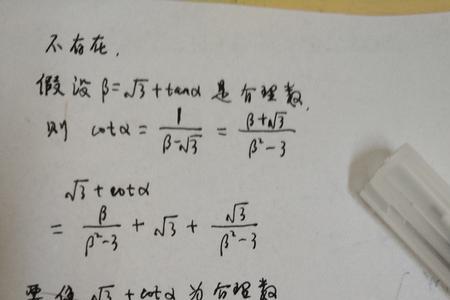 不存在.
假设 β=√3+tanα 是有理数.
则 cotα = 1/(β-√3) = (β+√3)/(β²-3)
√3+cotα
= β/(β²-3) + √3 + √3/(β²-3)
要使 √3+cotα 为有理数